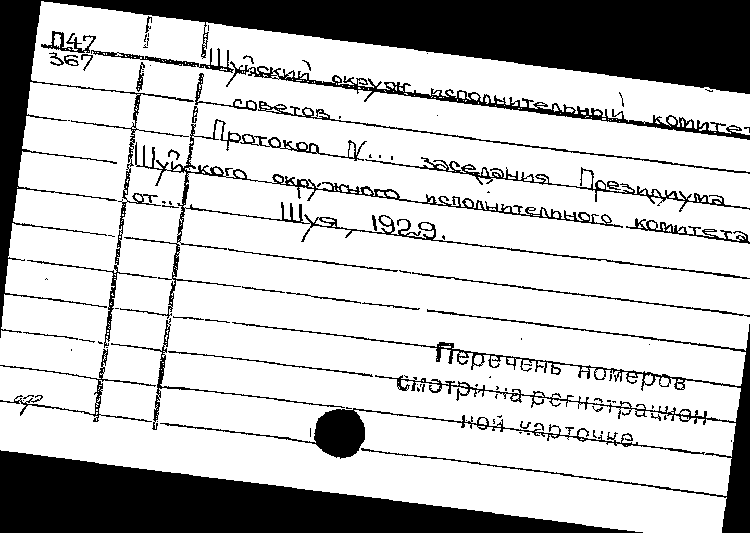 П47
367
Шуйский окруж. исполнительный комитет
советов.
Протокол N... заседания Президиума
Шуйского окружного исполнительного комитета
от....
Шуя, 1929.
Перечень номеров
смотри на регистрацион-
ной карточке.